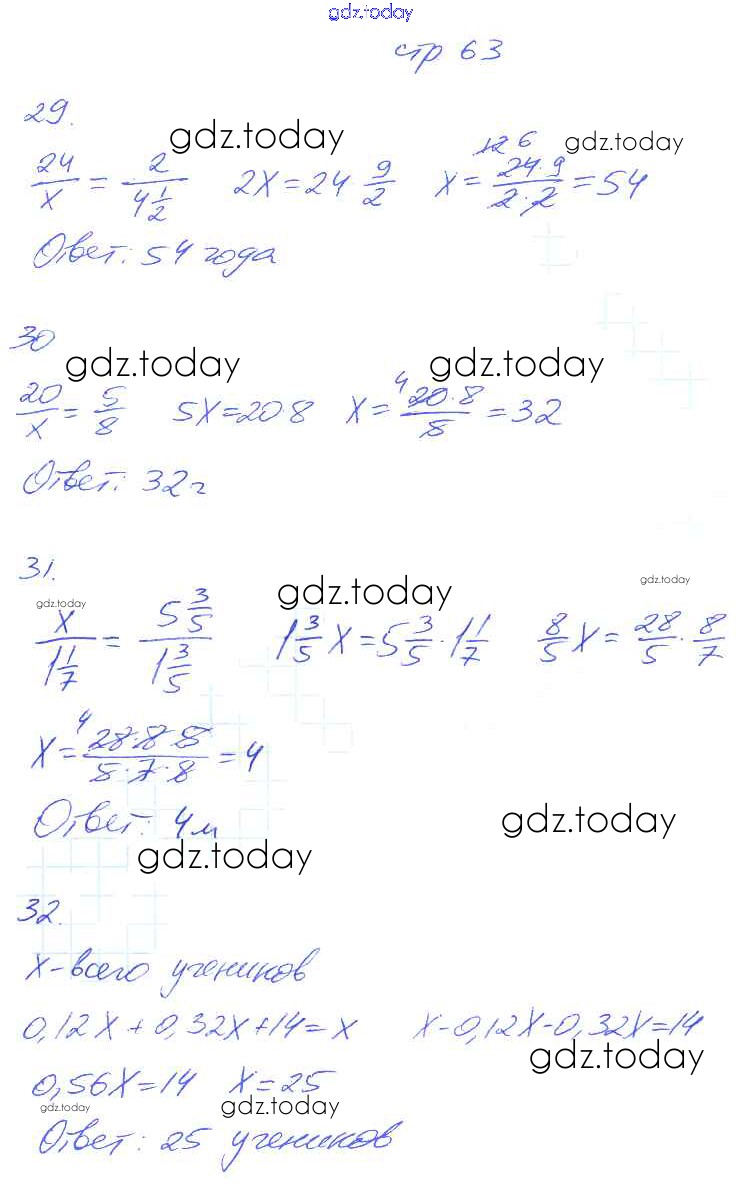 gdz.today
стр 63
29.
gdz.today gdz.today
24/x = 2/4 1/2 2x=24·9/2 x= 12 6 24·9/2·2 =54
Ответ: 54 года
30
gdz.today gdz.today
20/x = 5/8 5x=20·8 x= 4 20·8/5 =32
Ответ: 32 г
31.
gdz.today gdz.today gdz.today
x/1 1/7 = 5 3/5/1 3/5 1 3/5 x=5 3/5·1 1/7 8/5 x= 28/5·8/7
x= 4 28·8·5/5·7·8 =4
Ответ: 4м
gdz.today
gdz.today
32.
x-всего учеников
0,12x+0,32x+14=x x-0,12x-0,32x=14
gdz.today
0,56x=14 x=25
gdz.today gdz.today
Ответ: 25 учеников